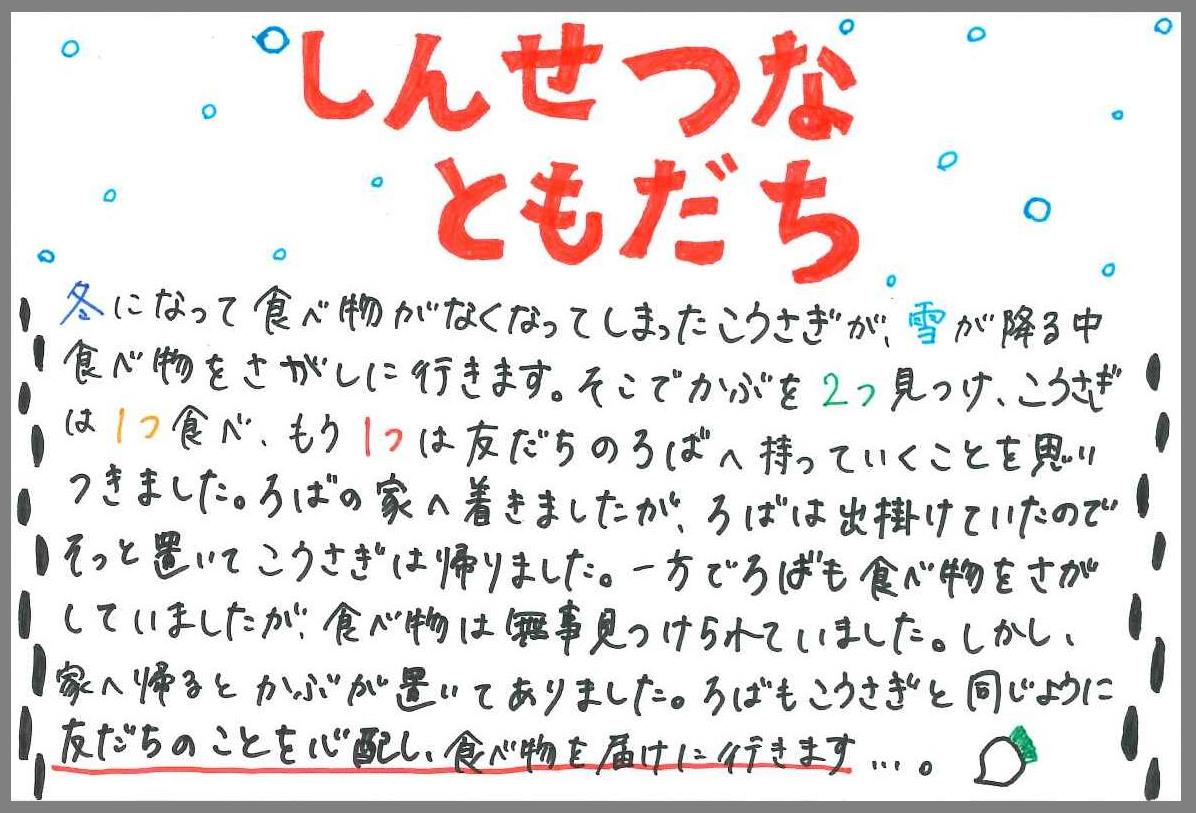 しんせつな
ともだち
冬になって食べ物がなくなってしまったこうさぎが、雪が降る中
食べ物をさがしに行きます。そこでかぶを2つ見つけ、こうさぎ
は1つ食べ、もう1つは友だちのろばへ持っていくことを思い
つきました。ろばの家へ着きましたが、ろばは出掛けていたので
そっと置いてこうさぎは帰りました。一方でろばも食べ物をさが
していましたが、食べ物は無事見つけられていました。しかし、
家へ帰るとかぶが置いてありました。ろばもこうさぎと同じように
友だちのことを心配し、食べ物を届けに行きます…。